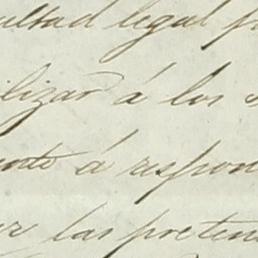 ultad legal p
ilizar á los
ento á respon
ar las preten